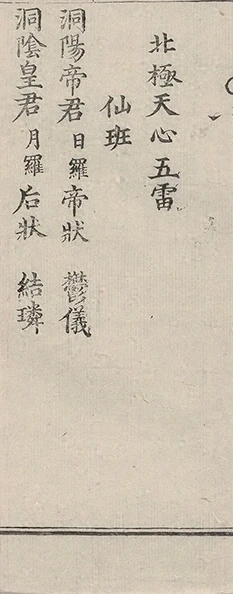 北極天心五雷
仙班
洞陽帝君日羅帝狀 鬱儀
洞陰皇君月羅后狀 結璘